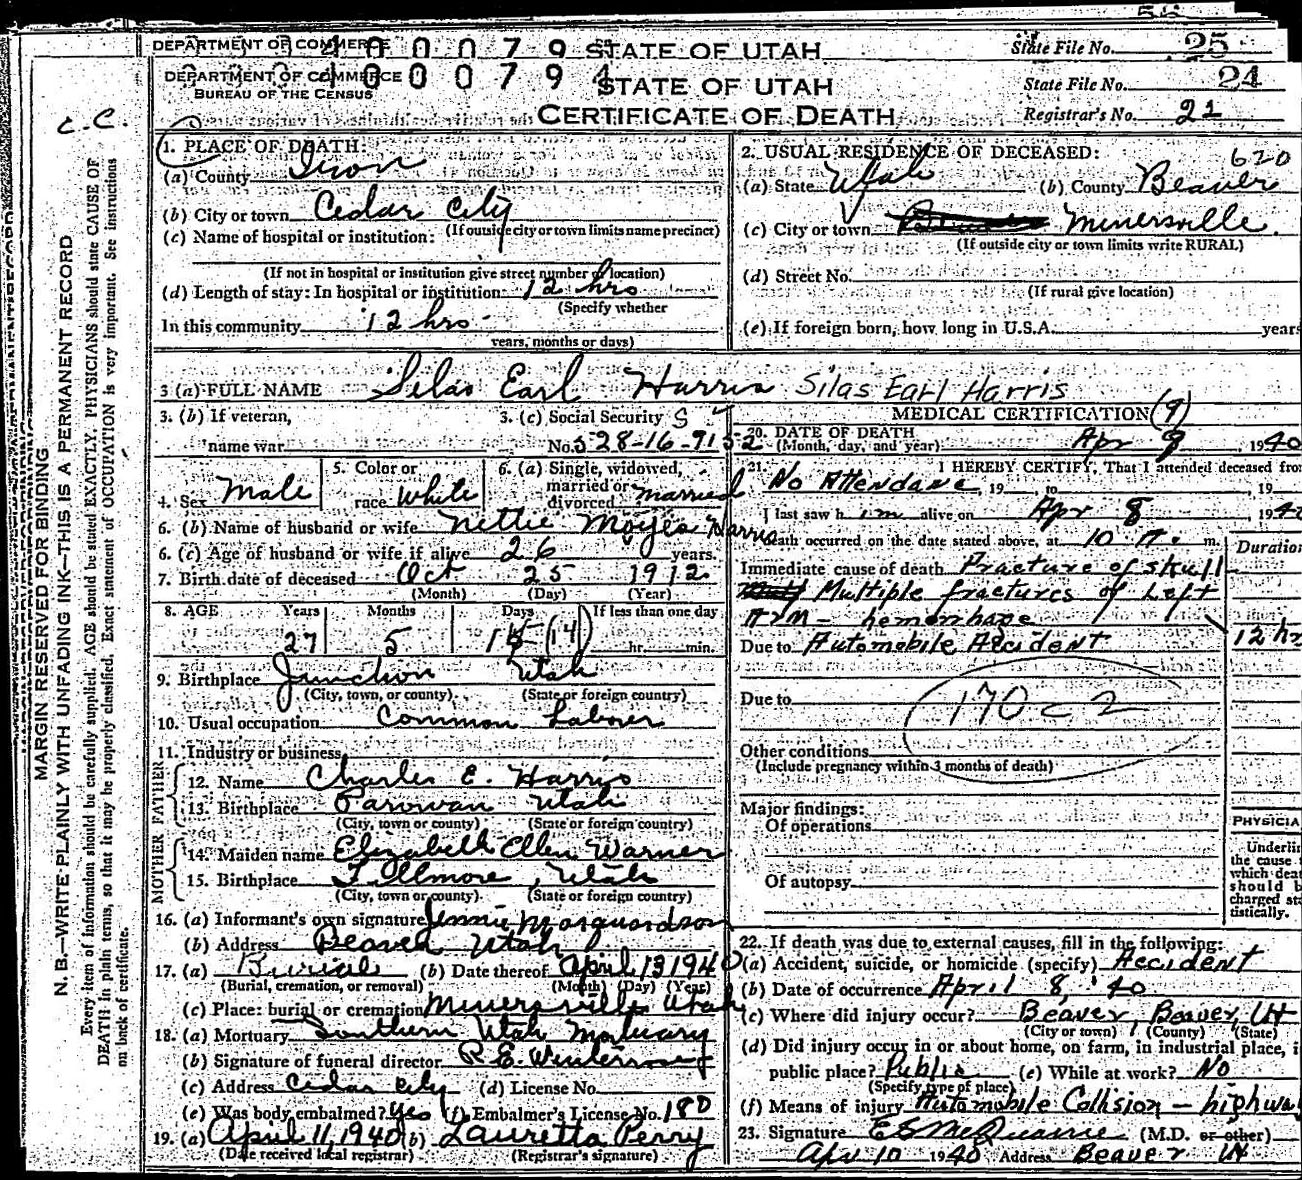 DEPARTMENT OF COMMERCE STATE OF UTAH State File No. 25
DEPARTMENT OF COMMERCE STATE OF UTAH State File No. 24
BUREAU OF THE CENSUS CERTIFICATE OF DEATH Registrar's No. 21
C.C.
MARGIN RESERVED FOR BINDING
N. B.—WRITE PLAINLY WITH UNFADING INK—THIS IS A PERMANENT RECORD
Every item of information should be carefully supplied. AGE should be stated EXACTLY. PHYSICIANS should state CAUSE OF
DEATH in plain terms, so that it may be properly classified. Exact statement of OCCUPATION is very important. See instructions
on back of certificate.
1. PLACE OF DEATH:
(a) County Iron
(b) City or town Cedar City
(If outside city or town limits name precinct)
(c) Name of hospital or institution:
(If not in hospital or institution give street number or location)
(d) Length of stay: In hospital or institution 12 hrs
(Specify whether
In this community 12 hrs
years, months or days)
2. USUAL RESIDENCE OF DECEASED: 620
(a) State Utah (b) County Beaver
(c) City or town Minersville.
(If outside city or town limits write RURAL)
(d) Street No.
(If rural give location)
(e) If foreign born, how long in U.S.A. years
3 (a) FULL NAME Silas Earl Harris Silas Earl Harris
3. (b) If veteran,
name war
3. (c) Social Security
No. 528-16-9152
4. Sex Male
5. Color or
race White
6. (a) Single, widowed,
married or
divorced married
6. (b) Name of husband or wife Nettie Moyes Harris
6. (c) Age of husband or wife if alive 26 years.
7. Birth date of deceased Oct 25 1912
(Month) (Day) (Year)
8. AGE Years Months Days If less than one day
27 5 15 (14) hr. min.
9. Birthplace Junction Utah
(City, town, or county) (State or foreign country)
10. Usual occupation Common Laborer
11. Industry or business
FATHER
12. Name Charles E. Harris
13. Birthplace Parowan Utah
(City, town or county) (State or foreign country)
MOTHER
14. Maiden name Elizabeth Ellen Warner
15. Birthplace Fillmore, Utah
(City, town or county) (State or foreign country)
16. (a) Informant's own signature Jennie Marquardson
(b) Address Beaver Utah
17. (a) Burial (b) Date thereof April 13 1940
(Burial, cremation, or removal) (Month) (Day) (Year)
(c) Place: burial or cremation Minersville Utah
18. (a) Mortuary Southern Utah Mortuary
(b) Signature of funeral director
(c) Address Cedar City (d) License No.
(e) Was body embalmed? Yes (f) Embalmer's License No. 180
19. (a) April 11, 1940 (b) Lauretta Perry
(Date received local registrar) (Registrar's signature)
MEDICAL CERTIFICATION (9)
20. DATE OF DEATH
(Month, day, and year) Apr 9, 1940
21. I HEREBY CERTIFY, That I attended deceased from
No Attendance, 19 , to , 19
I last saw h im alive on Apr 8 1940
Death occurred on the date stated above, at 10 m. Duration
Immediate cause of death Fracture of skull
Multiple fractures of Left
Arm - hemorrhage
Due to Automobile Accident 12 hr
Due to 170 c 2
Other conditions
(Include pregnancy within 3 months of death)
Major findings:
Of operations
Of autopsy
PHYSICIA
Underlin
the cause
which deat
should b
charged sta
tistically.
22. If death was due to external causes, fill in the following:
(a) Accident, suicide, or homicide (specify) Accident
(b) Date of occurrence April 8, '40
(c) Where did injury occur? Beaver, Beaver, Ut
(City or town) (County) (State)
(d) Did injury occur in or about home, on farm, in industrial place, i
public place? Public (e) While at work? No
(Specify type of place)
(f) Means of injury Automobile Collision - highway
23. Signature (M.D. or other)
Apr 10 1940 Address Beaver Ut